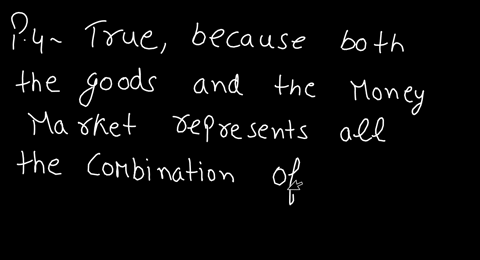 P.4~ True, because both
the goods and the Money
Market represents all
the Combination of